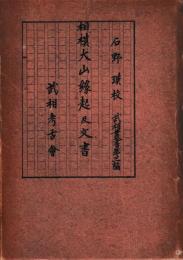 石野瑛校 武相叢書第二編
相模大山縁起及文書
武相考古會